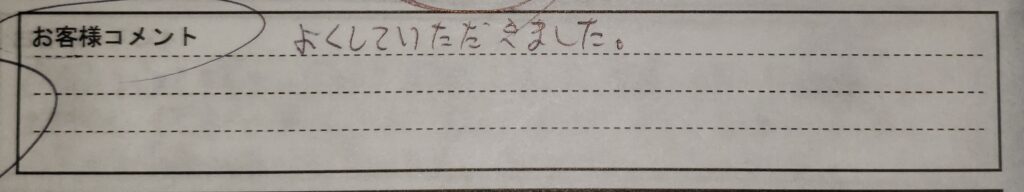 お客様コメント よくしていただきました。